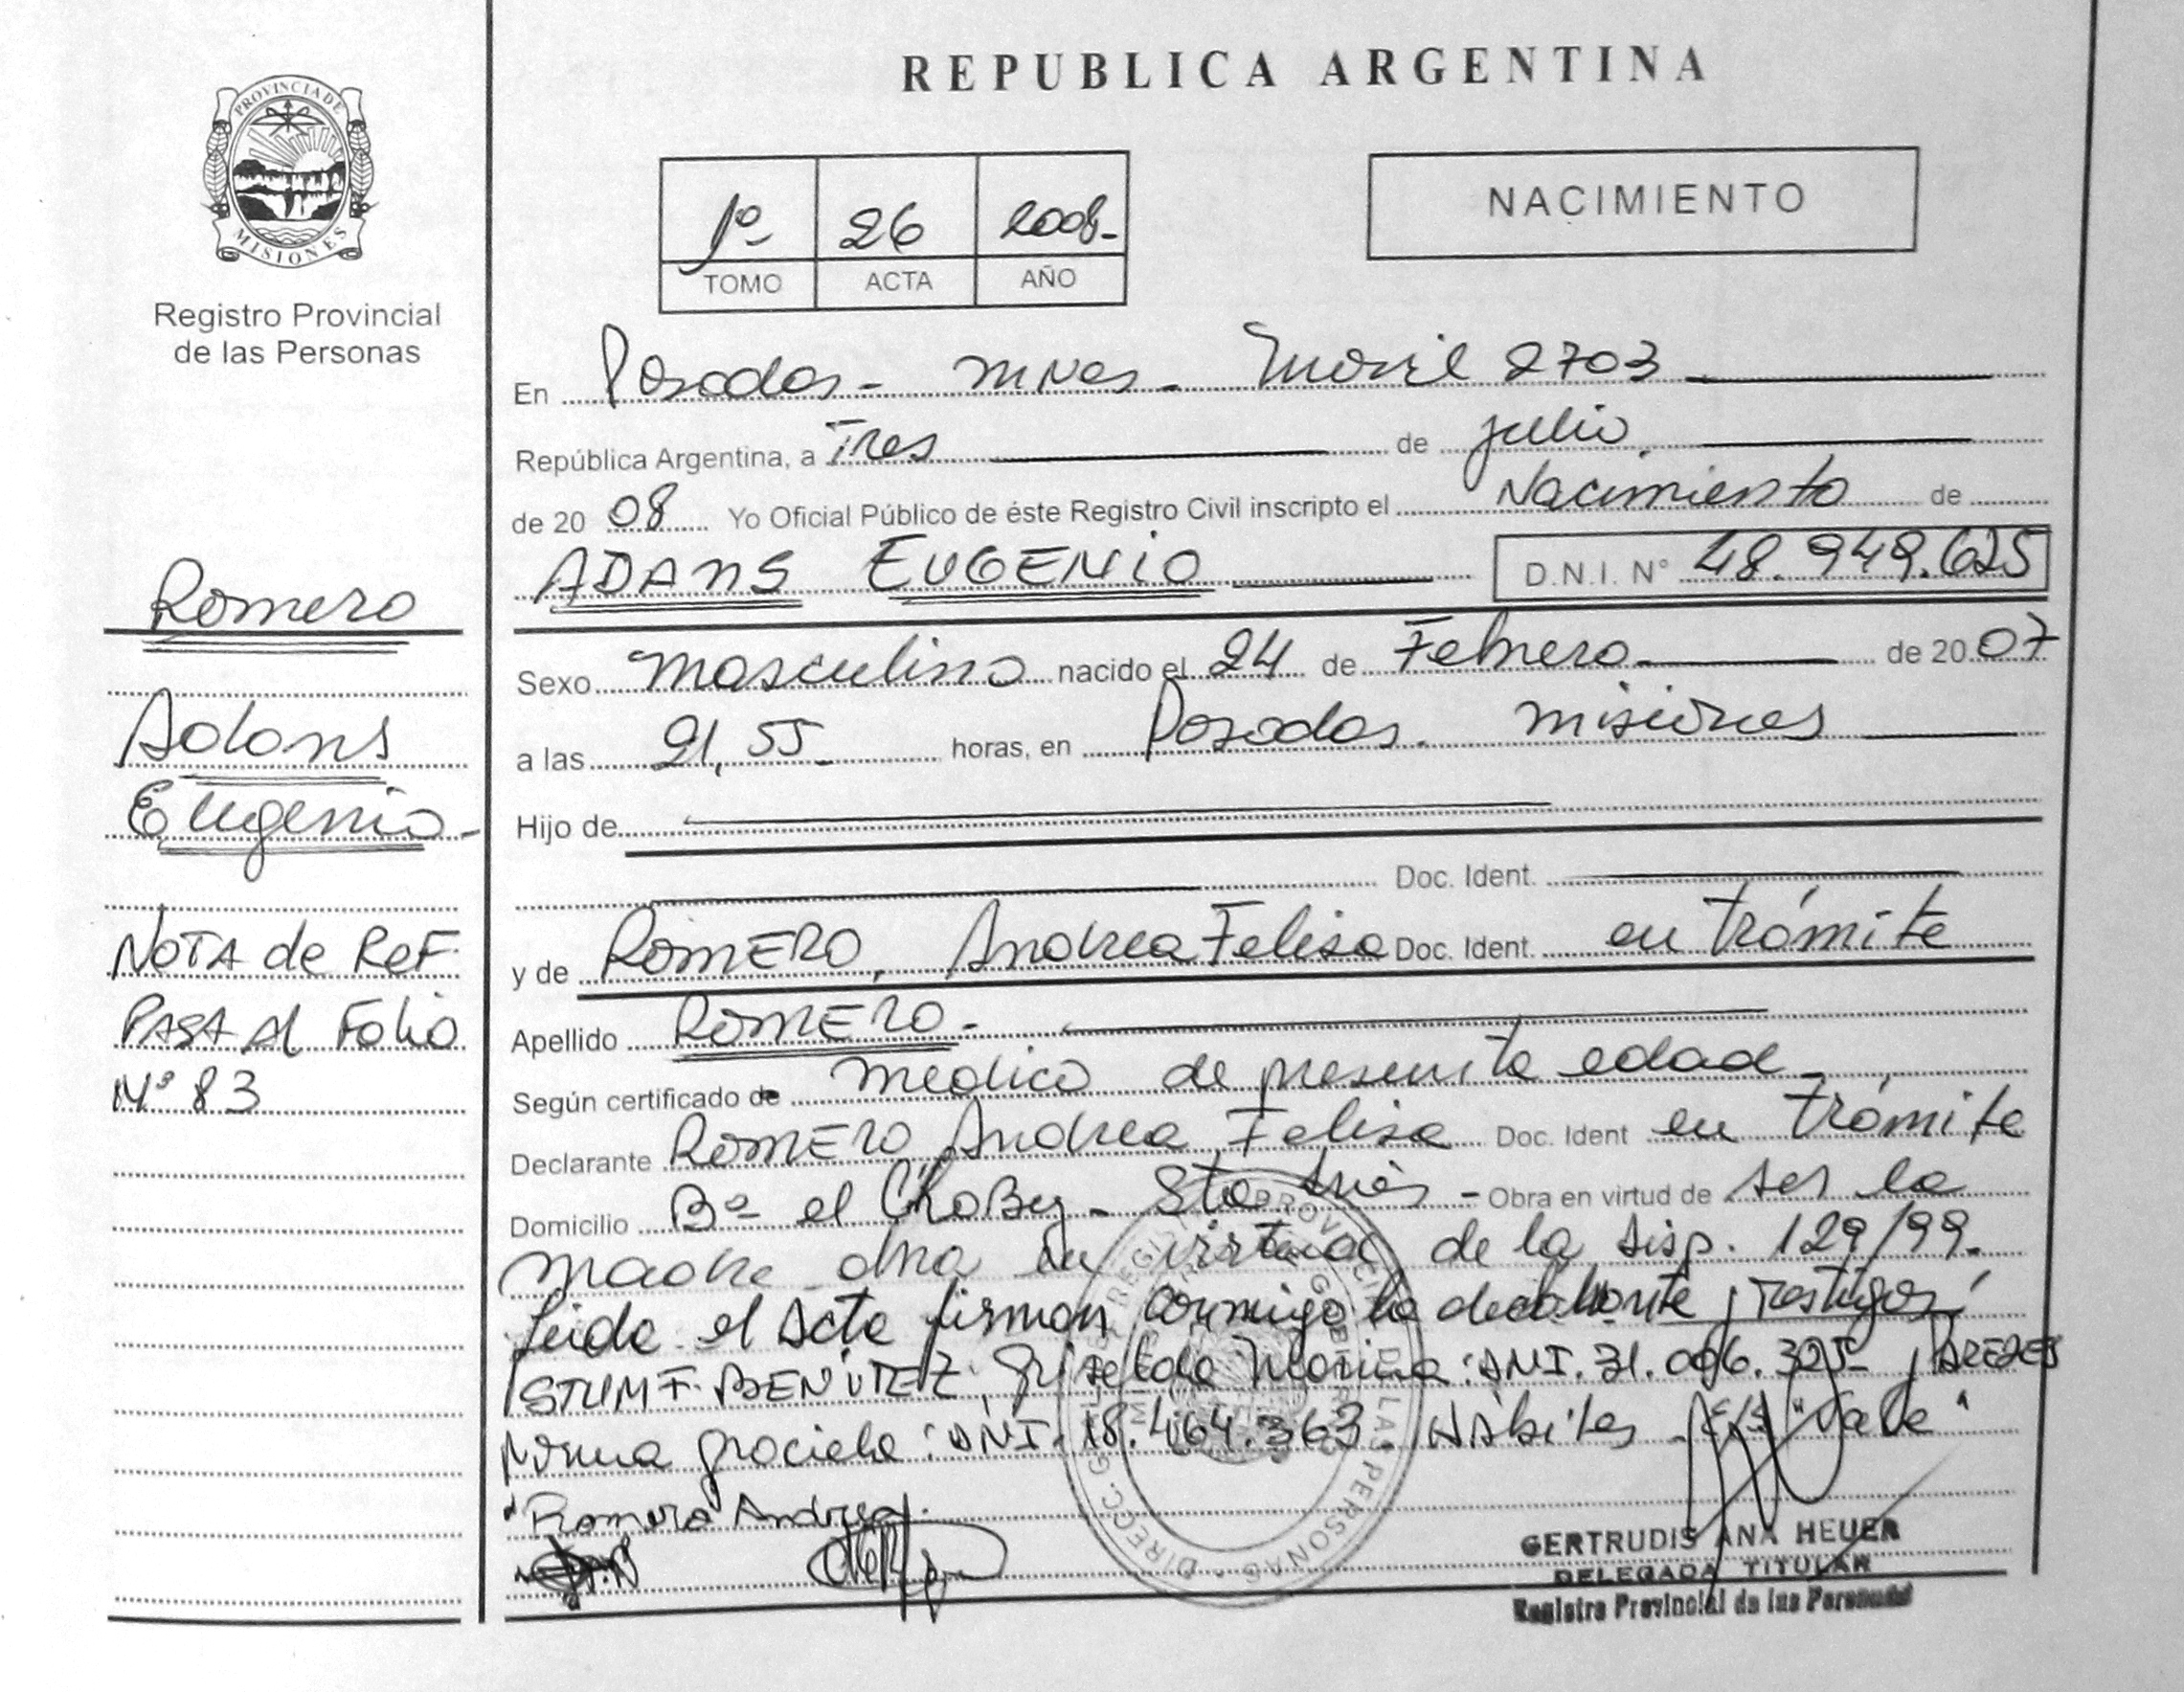 REPUBLICA ARGENTINA
PROVINCIA DE
MISIONES
Registro Provincial
de las Personas
1º 26 2008-
TOMO ACTA AÑO
NACIMIENTO
En Posadas - Mnes - Movil 2703
República Argentina, a Tres de julio
de 20 08 Yo Oficial Público de éste Registro Civil inscripto el Nacimiento de
ADANS EUGENIO D.N.I. Nº 48.949.625
Romero
Adans
Eugenio-
NOTA de ReF.
PASA Al Folio
Nº 83
Sexo masculino nacido el 24 de Febrero de 20 07
a las 21,55 horas, en Posadas. Misiones
Hijo de
Doc. Ident.
y de ROMERO, Andrea Felisa Doc. Ident. en trámite
Apellido ROMERO-
Según certificado de medico de presunta edad
Declarante ROMERO Andrea Felisa Doc. Ident en trámite
Domicilio Bº el Chobey - Sto Inés - Obra en virtud de ser la
madre obra en virtud de la Disp. 129/99.
Leida el Acta firman conmigo la declarante y testigos
STUMF BENITEZ, Griselda Marina: DNI. 31.006.325-
Norma Graciela: DNI. 18.464.363. Hábiles "Vale"
Romero Andrea
DIRECC. GRAL. REGISTRO PROVINCIAL DE LAS PERSONAS
GERTRUDIS ANA HEUER
DELEGADA TITULAR
Registro Provincial de las Personas